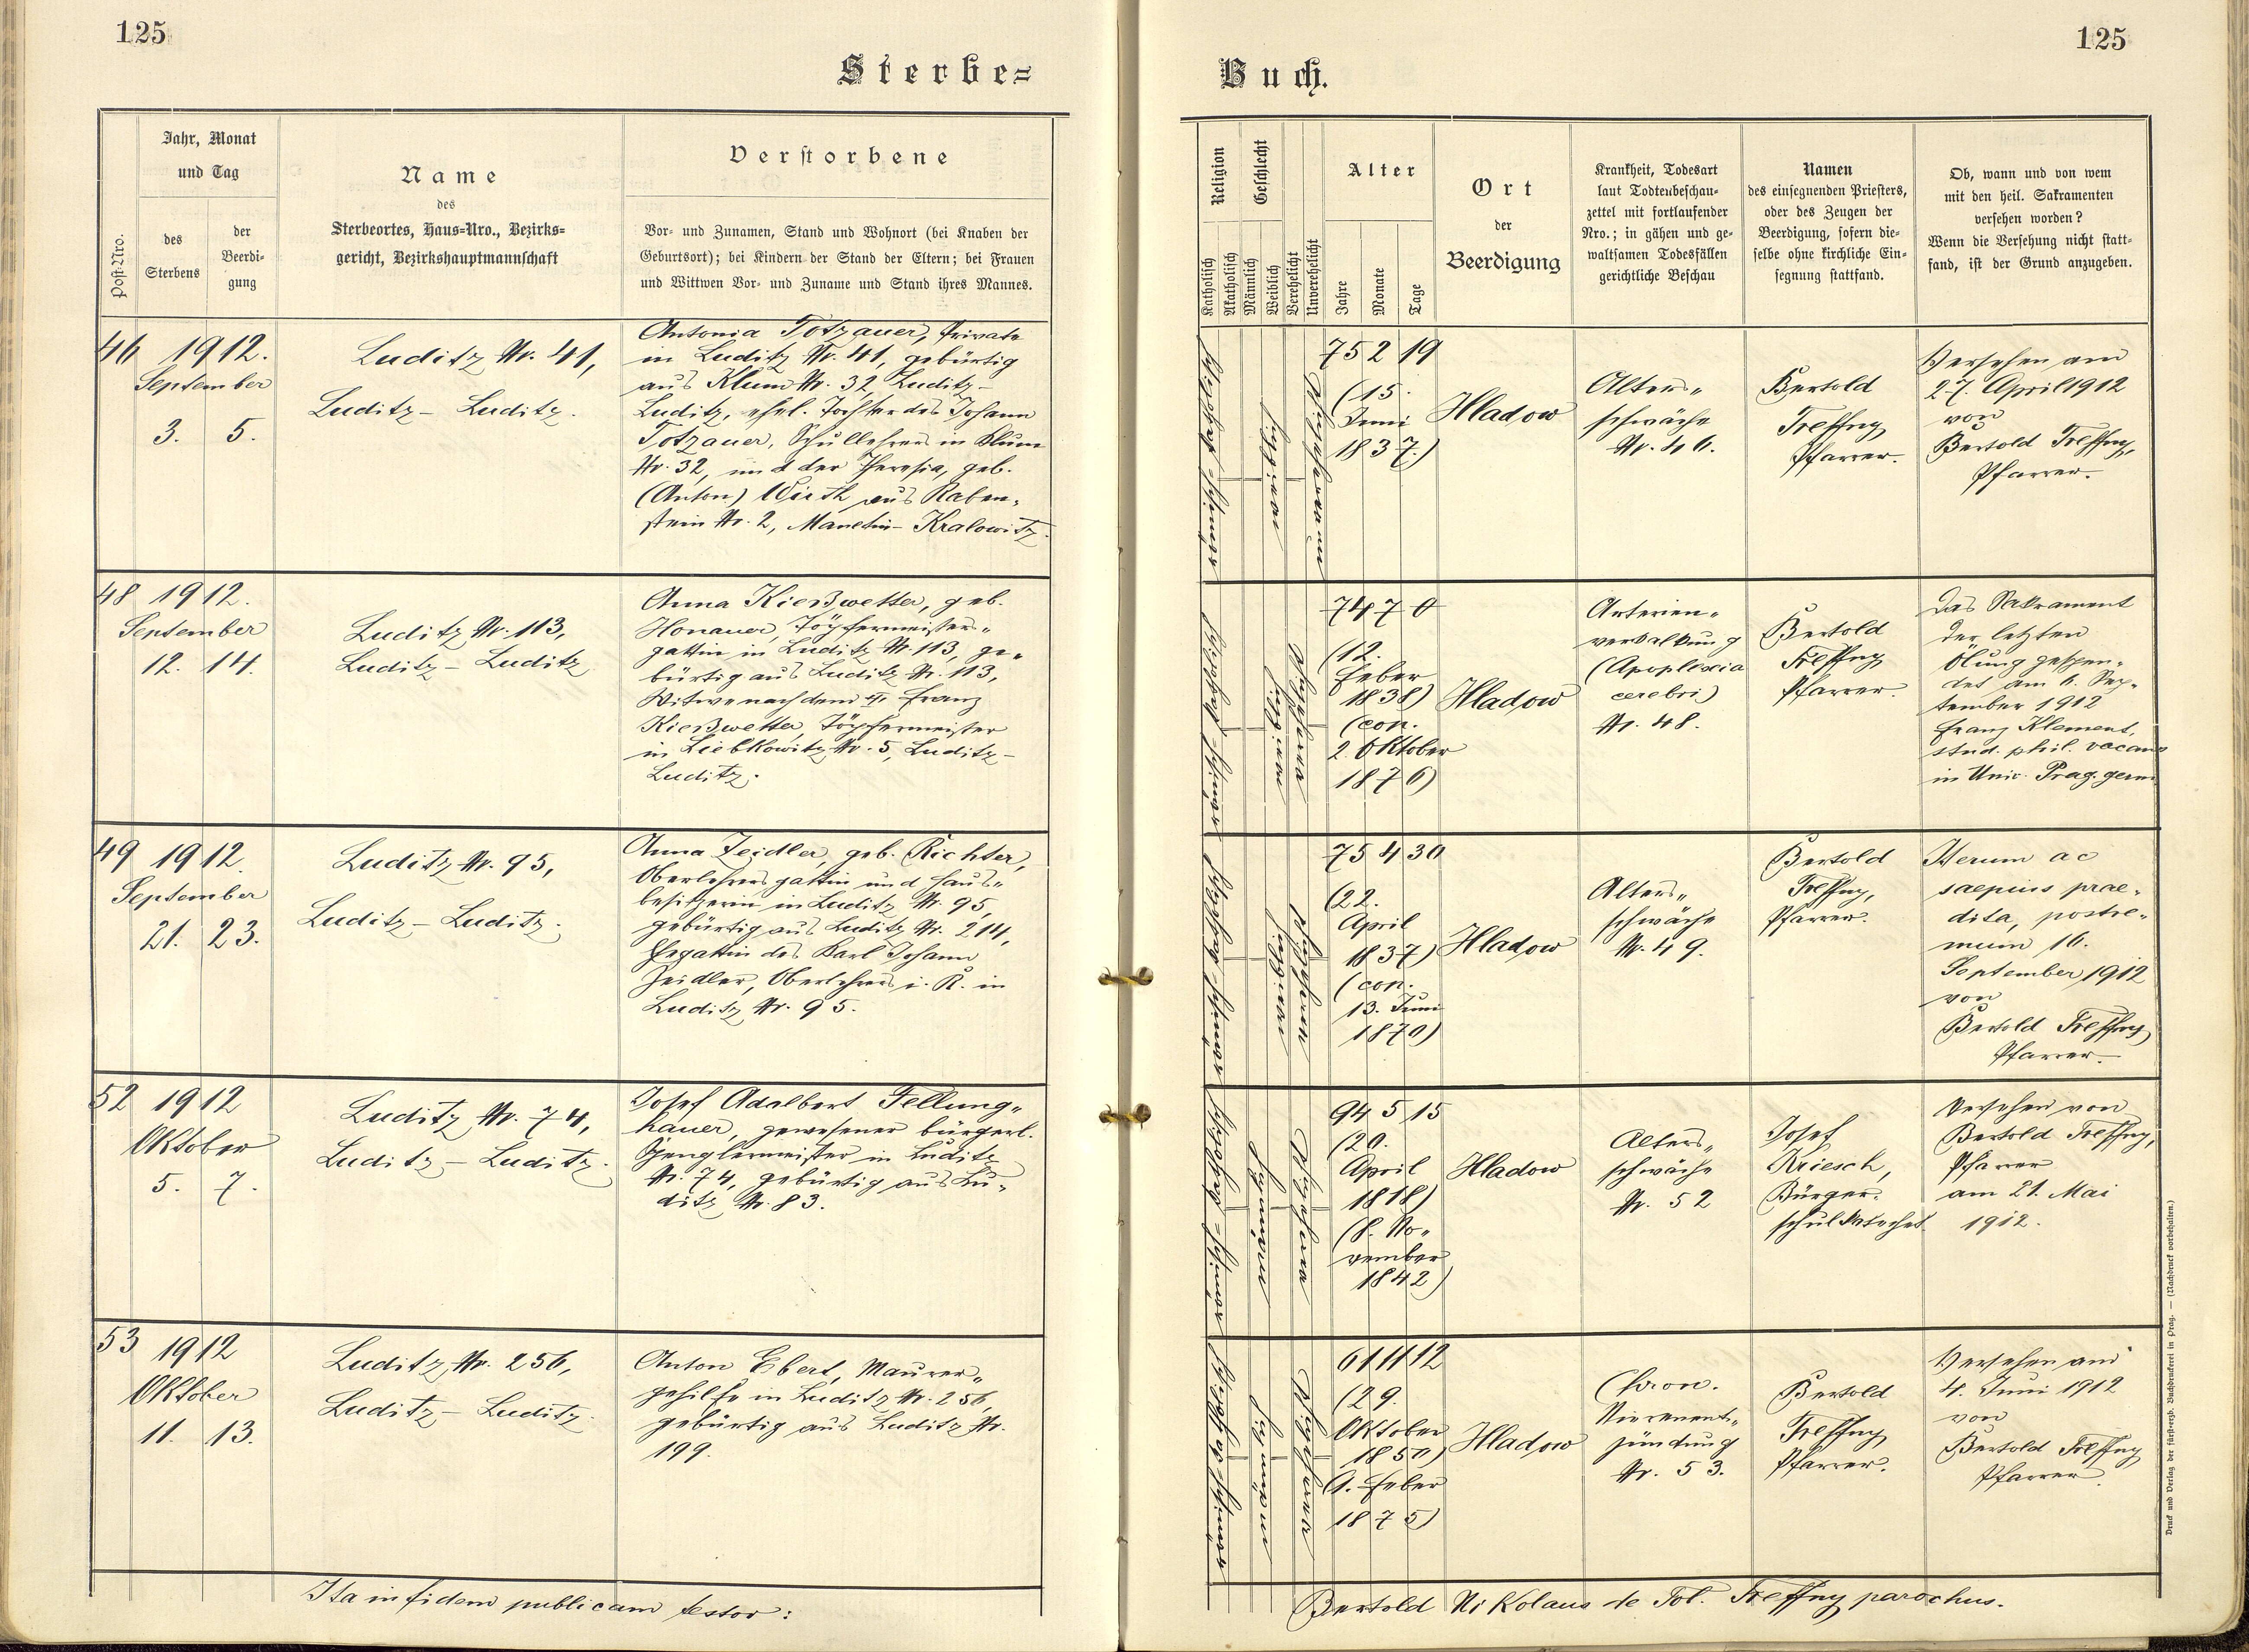 125
Sterbe=
Jahr, Monat
und Tag
Post-Nro.
des
Sterbens
der
Beerdi-
gung
Name
des
Sterbeortes, Haus-Nro., Bezirks-
gericht, Bezirkshauptmannschaft
Verstorbene
Vor- und Zunamen, Stand und Wohnort (bei Knaben der
Geburtsort); bei Kindern der Stand der Eltern; bei Frauen
und Wittwen Vor- und Zuname und Stand ihres Mannes.
46 1912.
September
3. 5.
Luditz Nr. 41,
Luditz – Luditz.
Antonia Totzauer, Private
in Luditz Nr. 41, gebürtig
aus Klum Nr. 32, Luditz –
Luditz, ehel. Tochter des Johann
Totzauer, Schullehrers in Klum
Nr. 32, und der Theresia, geb.
(Anton) Wirth aus Raben-
stein Nr. 2, Manetin – Kralowitz.
48 1912.
September
12. 14.
Luditz Nr. 113,
Luditz – Luditz
Anna Kießwetter, geb.
Honauer, Töpfermeisters-
gattin in Luditz Nr. 113, ge-
bürtig aus Luditz Nr. 113,
Witwe nach dem Franz
Kießwetter, Töpfermeister
in Liebkowitz Nr. 5, Luditz –
Luditz.
49 1912.
September
21. 23.
Luditz Nr. 95,
Luditz – Luditz.
Anna Zeidler, geb. Richter,
Oberlehrers gattin und Haus-
besitzerin in Luditz Nr. 95,
gebürtig aus Luditz Nr. 214,
Ehegattin des Karl Johann
Zeidler, Oberlehrers i. R. in
Luditz Nr. 95.
52 1912
Oktober
5. 7.
Luditz Nr. 74,
Luditz – Luditz.
Josef Adalbert Fellung-
hauer, gewesener bürgerl.
Spenglermeister in Luditz
Nr. 74, gebürtig aus Lu-
ditz Nr. 83.
53 1912
Oktober
11. 13.
Luditz Nr. 256,
Luditz – Luditz.
Anton Ebert, Maurer-
gehilfe in Luditz Nr. 256,
gebürtig aus Luditz Nr.
199.
Ita in fidem publicam testor:
125
Buch.
Religion
Katholisch
Akatholisch
Geschlecht
Männlich
Weiblich
Verehelicht
Unverehelicht
Alter
Jahre
Monate
Tage
Ort
der
Beerdigung
Krankheit, Todesart
laut Todtenbeschau-
zettel mit fortlaufender
Nro.; in gähen und ge-
waltsamen Todesfällen
gerichtliche Beschau
Namen
des einsegnenden Priesters,
oder des Zeugen der
Beerdigung, sofern die-
selbe ohne kirchliche Ein-
segnung stattfand.
Ob, wann und von wem
mit den heil. Sakramenten
versehen worden?
Wenn die Versehung nicht statt-
fand, ist der Grund anzugeben.
75 2 19
(15.
Juni
1837.)
Hladow
Alters-
schwäche
Nr. 46.
Bertold
Treffny
Pfarrer.
Versehen am
27. April 1912
von
Bertold Treffny,
Pfarrer.
74 7 0
(12.
Feber
1838)
(cop.
2. Oktober
1876)
Hladow
Arterien-
verkalkung
(Apoplexia
cerebri)
Nr. 48.
Bertold
Treffny
Pfarrer.
Das Sakrament
der letzten
Ölung gespen-
det am 6. Sep-
tember 1912
Franz Klement,
stud. phil. vacans
in Univ. Prag. germ.
75 4 30
(22.
April
1837)
(cop.
13. Juni
1870)
Hladow
Alters-
schwäche
Nr. 49.
Bertold
Treffny,
Pfarrer.
Iterum ac
saepius prae-
dita, postre-
mum 16.
September 1912
von
Bertold Treffny
Pfarrer.
94 5 15
(20.
April
1818)
(8. No-
vember
1842)
Hladow
Alters-
schwäche
Nr. 52
Josef
Kriesch,
Bürger-
schulkatechet.
Versehen von
Bertold Treffny,
Pfarrer
am 21. Mai
1912.
61 11 12
(29.
Oktober
1850)
(1. Feber
1875)
Hladow
Chron.
Nierenent-
zündung
Nr. 53.
Bertold
Treffny
Pfarrer.
Versehen am
4. Juni 1912
von
Bertold Treffny
Pfarrer.
Bertold Nikolaus de Tol. Treffny parochus.
Druck und Verlag der fürsterzb. Buchdruckerei in Prag. — (Nachdruck vorbehalten.)